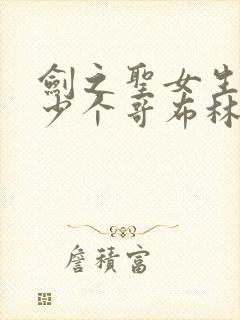 劍之聖女生
少个哥布林
詹積富